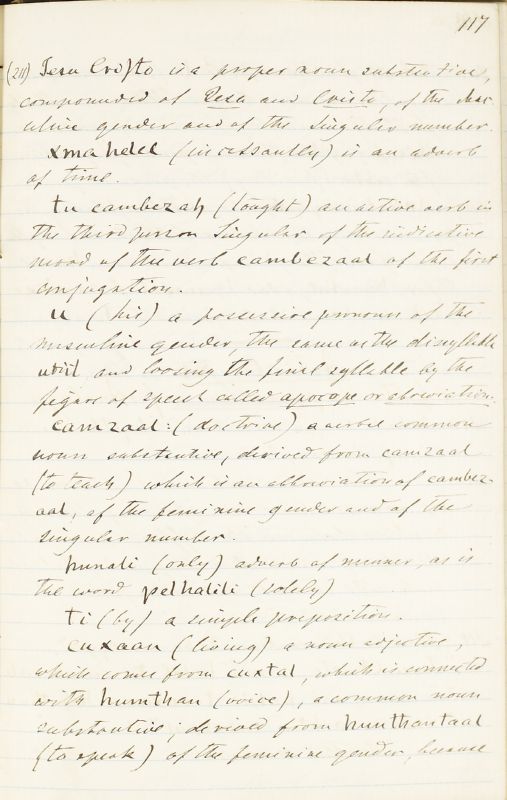 117
(211) Jesu Cristo is a proper noun substantive,
compounded of Jesu and Cristo, of the Mas-
culine gender and of the Singular number.
xma helel (incessantly) is an adverb
of time.
tu cambezah (taught) an active verb in
the third person Singular of the indicative
mood of the verb cambezaal of the first
conjugation.
u (his) a possessive pronoun of the
masculine gender, the same as the disyllable
and loosing the final syllable by the
figure of speech called apocope or abbreviation.
camzaal: (doctrine) a verbal common
noun substantive, derived from camzaal
(to teach) which is an abbreviation of cambez-
aal, of the feminine gender and of the
singular number.
hunali (only) adverb of manner, as is
the word pelhalili (solely)
ti (by) a simple preposition.
cuxaan (living) a noun adjective,
which comes from cuxtal, which is connected
with humthan (voice), a common noun
substantive; derived from hunthantaal
(to speak) of the feminine gender, because